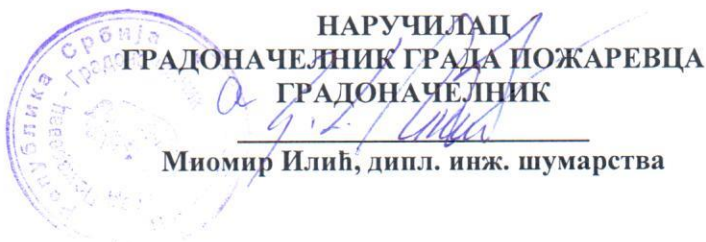 НАРУЧИЛАЦ
ГРАДОНАЧЕЛНИК ГРАДА ПОЖАРЕВЦА
ГРАДОНАЧЕЛНИК
Миомир Илић, дипл. инж. шумарства
Република Србија